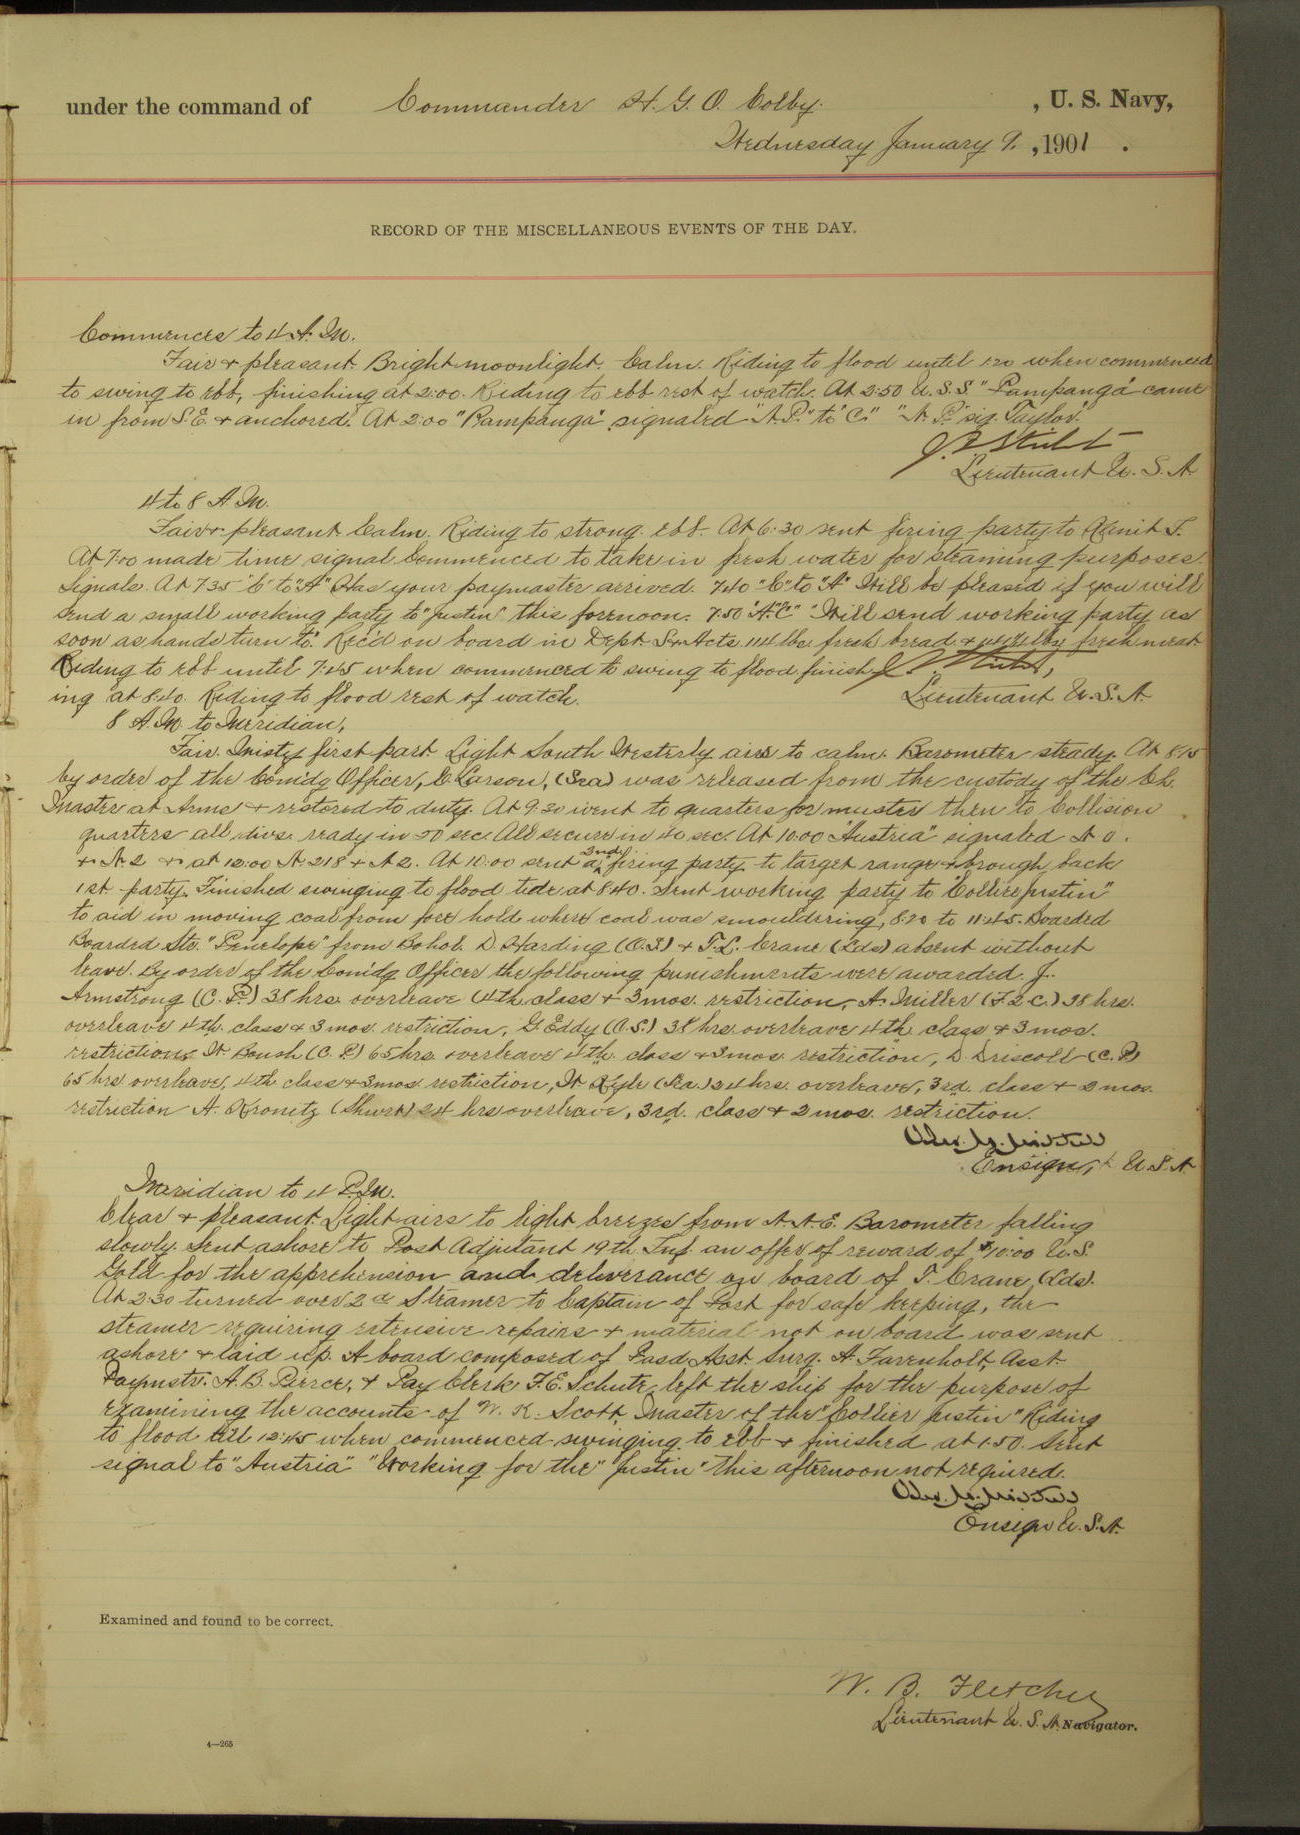 under the command of Commander H. G. O. Colby. , U. S. Navy,
Wednesday January 9. , 1901 .
RECORD OF THE MISCELLANEOUS EVENTS OF THE DAY.
Commences to 4 A. M.
Fair & pleasant. Bright moonlight. Calm. Riding to flood until 1:20 when commenced
to swing to ebb, finishing at 2:00. Riding to ebb rest of watch. At 2:50 U.S.S. "Pampanga" came
in from S. E. & anchored. At 2:00 "Pampanga" signaled "A.P." to "C." "A. P." sig. Taylor.
Lieutenant U. S. N.
4 to 8 A. M.
Fair & pleasant. Calm. Riding to strong ebb. At 6:30 sent firing party to
At 7:00 made time signal. Commenced to take in fresh water for steaming purposes.
Signals. At 7:35 "C" to "A" Has your paymaster arrived. 7:40 "C" to "A" Will be pleased if you will
send a small working party to "Justin" this forenoon. 7:50 "A" "C" "Will send working party as
soon as hands turn to." Rec'd on board in Dept. S and Accts. 114 lbs. fresh bread & fresh meat.
Riding to ebb until 7:45 when commenced to swing to flood finish
ing at 8:40. Riding to flood rest of watch. Lieutenant U. S. N.
8 A. M. to Meridian,
Fair. Misty first part. Light South Westerly airs to calm. Barometer steady. At 8:15
by order of the Com'dg Officer, C. Larson, (Sea) was released from the custody of the Ch.
Master at Arms & restored to duty. At 9:30 went to quarters for muster then to Collision
quarters all divs. ready in 50 sec. All secure in 40 sec. At 10:00 "Austria" signaled A 0.
& A 2 & at 12:00 A 218 & A 2. At 10:00 sent a 2nd firing party to target range & brough back
1st party. Finished swinging to flood tide at 8:40. Sent working party to "Collier Justin"
to aid in moving coal from fore hold where coal was smouldering, 8:20 to 11:45. Boarded
Boarded Str. "Penelope" from Bohol. D. Harding (O.S.) & T. L. Crane (Lds) absent without
leave. By order of the Com'dg Officer the following punishments were awarded. J.
Armstrong (C. P.) 38 hrs. overleave (4th class & 3 mos. restriction, A. Miller (F. 2 C.) 38 hrs.
overleave 4th class & 3 mos. restriction, G. Eddy (O.S.) 38 hrs. overleave 4th class & 3 mos.
restriction, W. Boush (C. P.) 65 hrs overleave 4th class & 3 mos. restriction, D. Driscoll (C. P.)
65 hrs overleave, 4th class & 3 mos. restriction, W. Kyle (Sea.) 24 hrs. overleave, 3rd class & 2 mos.
restriction A. Kronitz (Shwrt) 24 hrs overleave, 3rd. class & 2 mos. restriction.
Ensign, U. S. N.
Meridian to 4 P. M.
Clear & pleasant. Light airs to light breezes from N. N. E. Barometer falling
slowly. Sent ashore to Post Adjutant 19th Inf. an offer of reward of $10.00 U. S.
Gold for the apprehension and deliverance on board of T. Crane, (Lds).
At 2:30 turned over 2d Steamer to Captain of Port for safe keeping, the
steamer requiring extensive repairs & material not on board was sent
ashore & laid up. A board composed of Pasd. Asst. Surg. A. Farenholt, Asst.
Paymstr. H. B. Pierce, & Pay Clerk F. E. Schutz, left the ship for the purpose of
examining the accounts of W. K. Scott, Master of the "Collier Justin" Riding
to flood till 12:45 when commenced swinging to ebb & finished at 1:50. Sent
signal to "Austria" "Working for the "Justin" this afternoon not required.
Ensign U. S. N.
Examined and found to be correct.
W. B. Fletcher
Lieutenant U. S. N. Navigator.
4—265